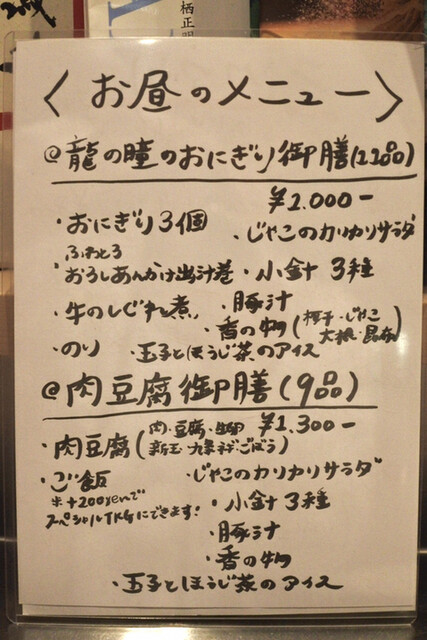 栖正明
〈お昼のメニュー〉
@龍の瞳のおにぎり御膳(12品)
¥2.000-
・おにぎり3個
・じゃこのカリカリサラダ
ふわとろ
・おろしあんかけ出汁巻
・小鉢 3種
・牛のしぐれ煮
・豚汁
・香の物(柚子・じゃこ
大根・昆布)
・のり
・玉子とほうじ茶のアイス
@肉豆腐御膳(9品)
¥1.300-
・肉豆腐(肉・豆腐・生卵
新玉・九条ネギ・ごぼう)
・ご飯
・じゃこのカリカリサラダ
※+200yenで
スペシャルTKGにできます!
・小鉢 3種
・豚汁
・香の物
・玉子とほうじ茶のアイス